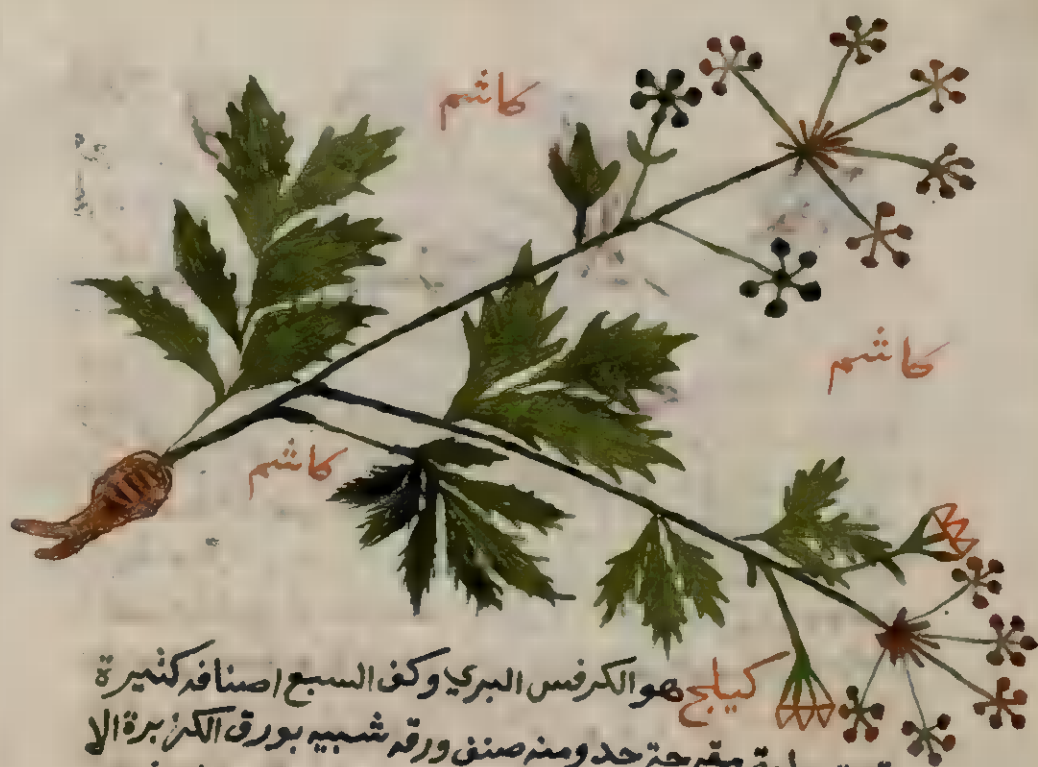 كاشم
كاشم
كاشم
كيلج هو الكرفس البري وكف السبع اصنافه كثيرة
حادة مقرحة جدا ومنه صنف ورقه شبيه بورق الكزبرة الا